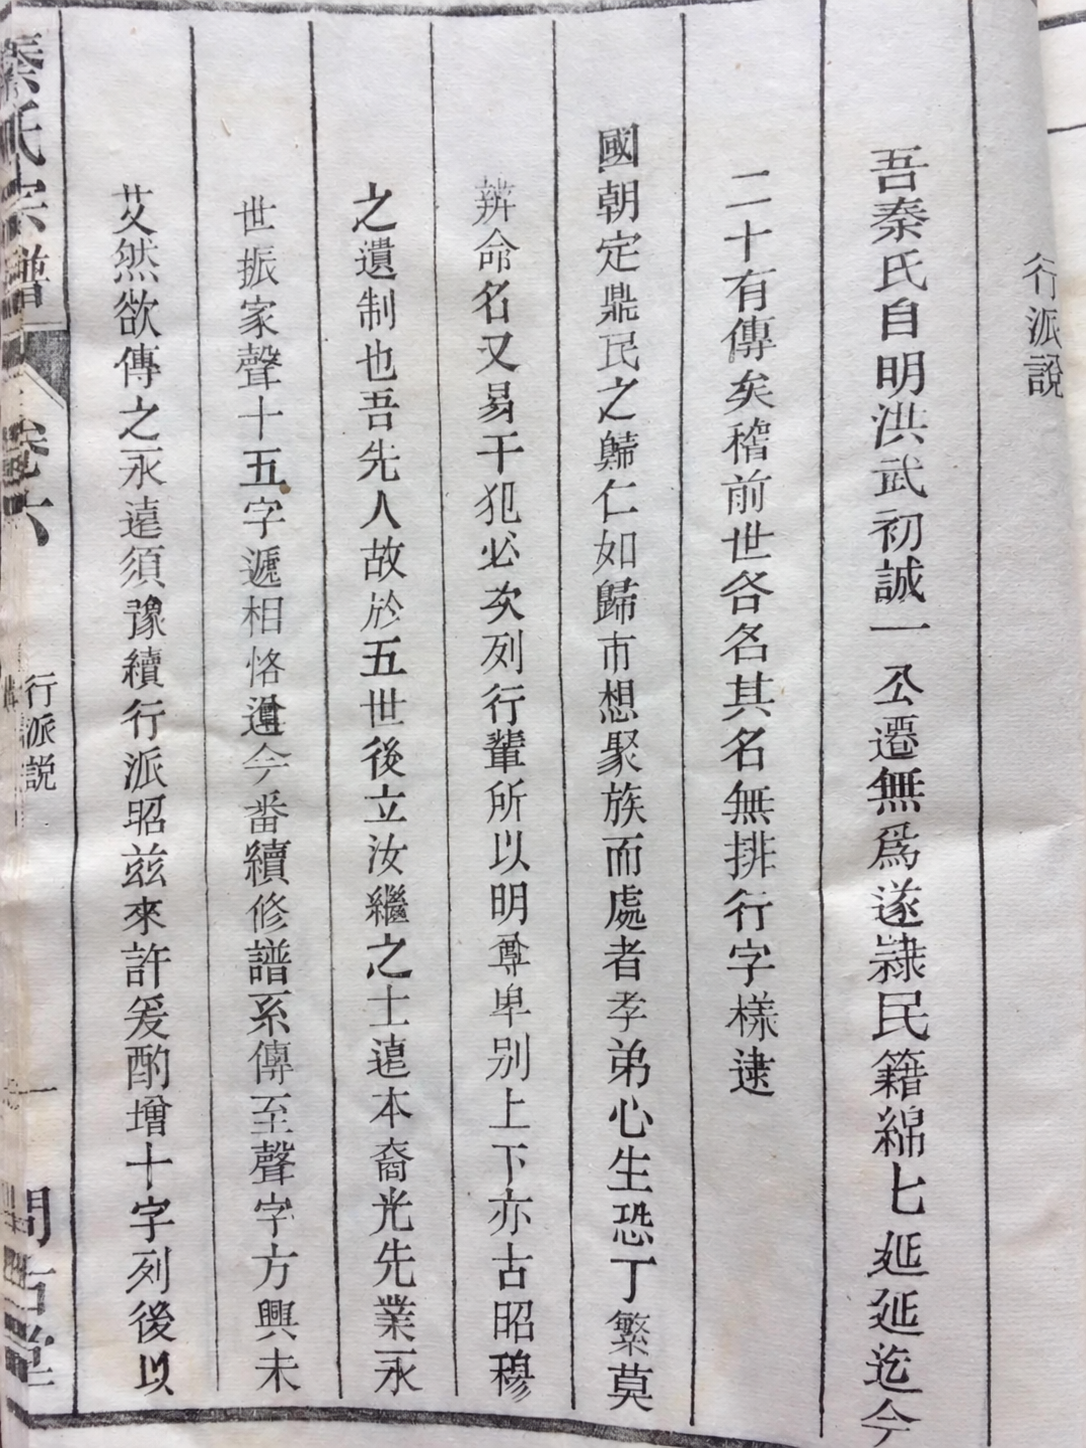 行派說
吾秦氏自明洪武初誠一公遷無爲遂隸民籍綿七延延迄今
二十有傳矣稽前世各名其名無排行字樣逮
國朝定鼎民之歸仁如歸市想聚族而處者孝弟心生恐丁繁莫
辨命名又易干犯必次列行輩所以明尊卑别上下亦古昭穆
之遺制也吾先人故於五世後立汝繼之士遠本裔光先業永
世振家聲十五字遞相恪遵今番續修譜系傳至聲字方興未
艾然欲傳之永遠須豫續行派昭兹來許爰酌增十字列後以
秦氏宗譜
卷六
行派説
一
問古堂